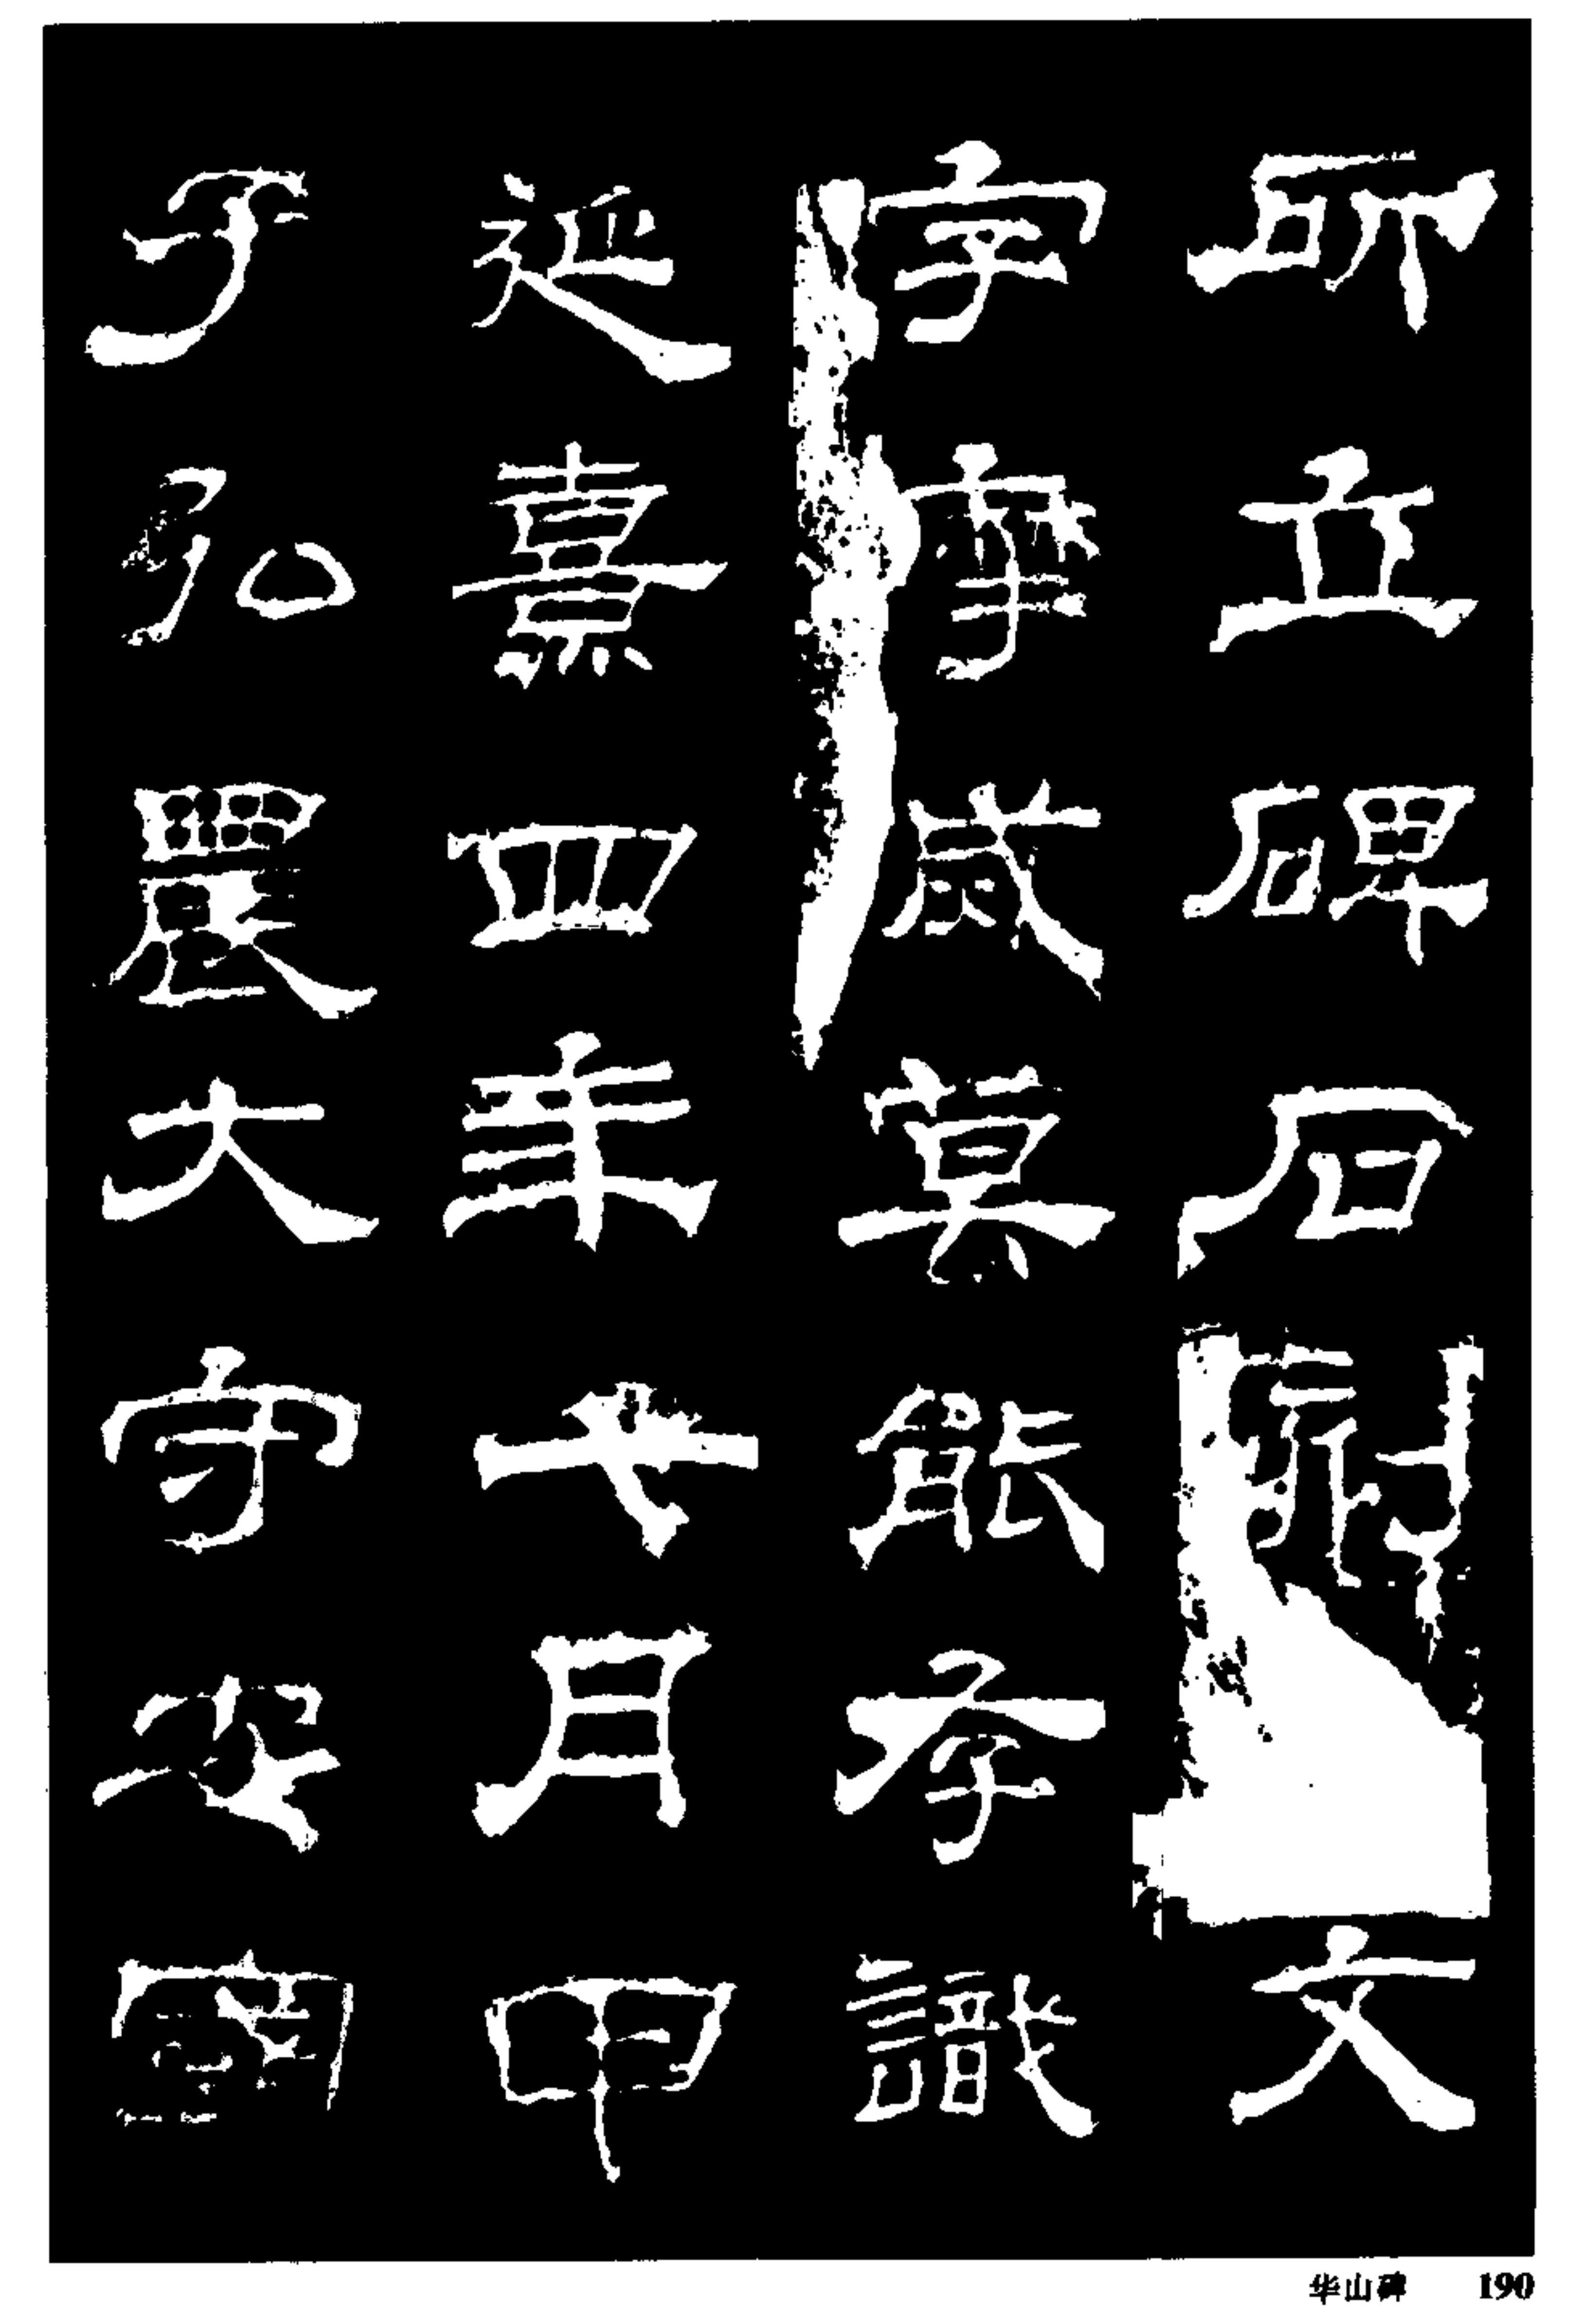 所立碑石刻文
字摩滅莫能存識
延熹四年七月甲
子弘農大守安國
华山碑 190